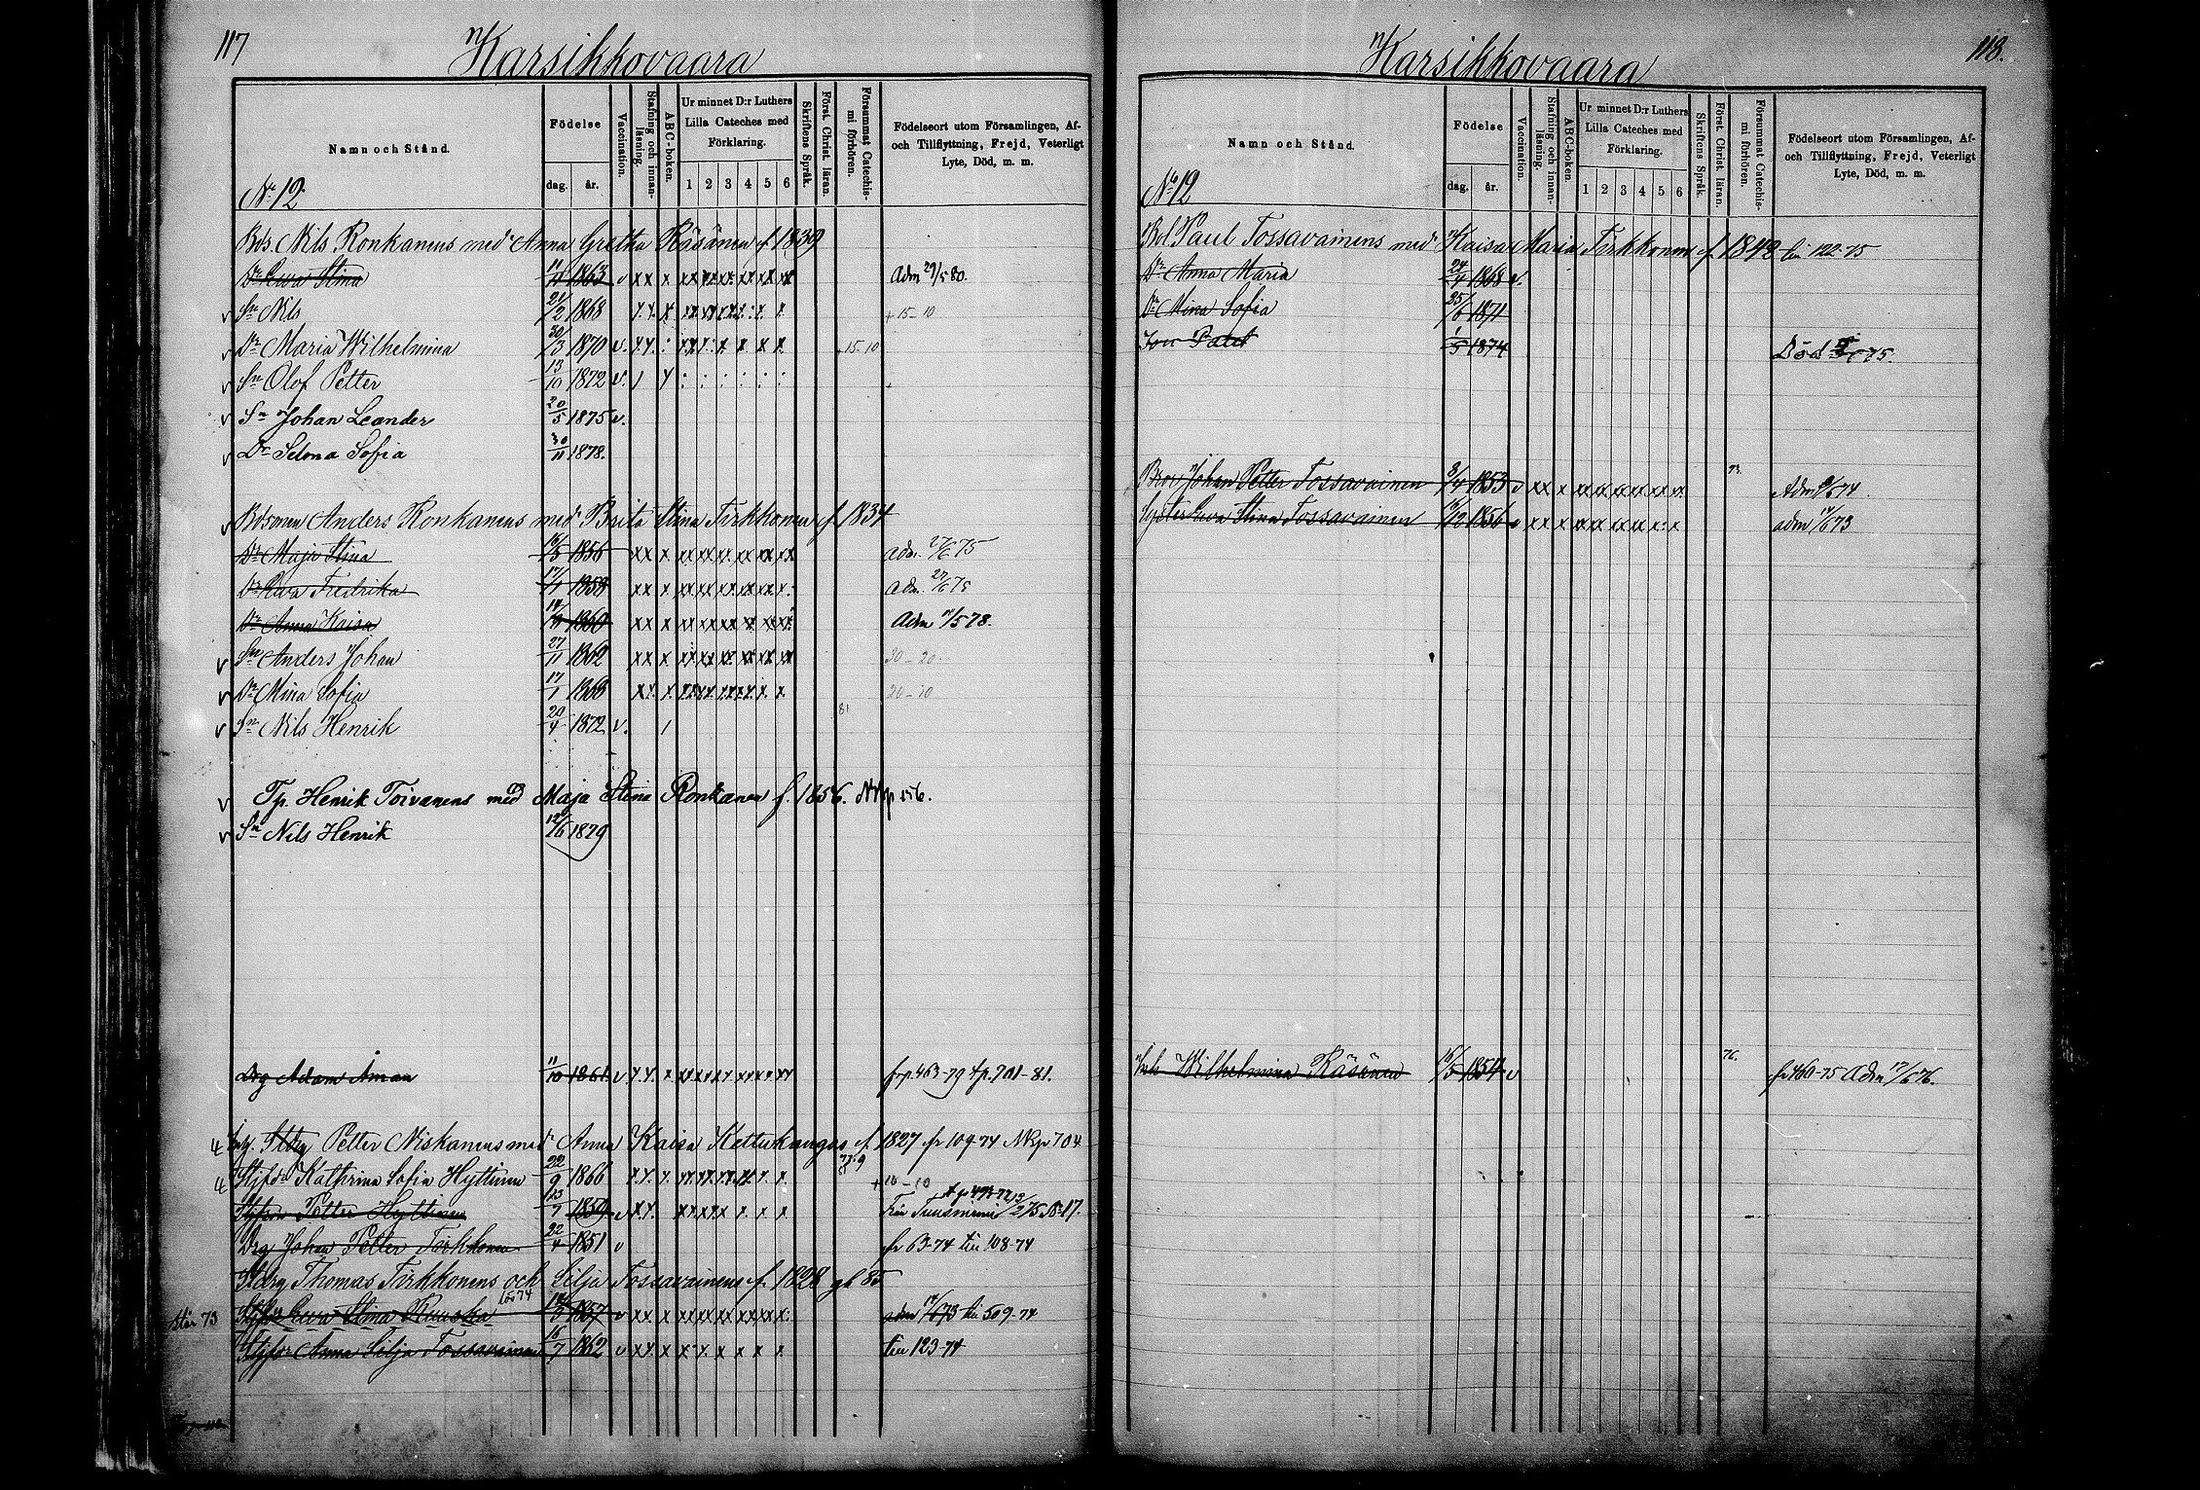 117
Karsikkovaara
Namn och Stånd.
Födelse
dag. år.
Vaccination.
Stafning och innan-läsning.
ABC-boken.
Ur minnet D:r Luthers Lilla Cateches med Förklaring.
1 2 3 4 5 6
Skriftens Språk.
Först. Christ. läran.
Försummat Catechis-mi förhören.
Födelseort utom Församlingen, Af- och Tillflyttning, Frejd, Veterligt Lyte, Död, m. m.
No 12
Bds. Nils Ronkanens med Anna Gretha Räsänen f. 1839
Dr Ewa Stina 1863 Adm 29/5 80.
Sn Nils 21/2 1868 + 15-10
Dr Maria Wilhelmina 30/3 1870 + 15-10
Sn Olof Petter 13/10 1872
Sn Johan Leander 20/5 1875
Dr Selma Sofia 30/11 1878.
Bdsonen Anders Ronkanens med Brita Stina Tirkkonen f. 1834
Dr Maja Stina 16/5 1856 adm. 27/6 75
Dr Ewa Fredrika 17/4 1858 adm. 27/6 75
Dr Anna Kaisa 1860 Adm 11/5 78.
Sn Anders Johan 27/11 1862 30-20.
Dr Mina Sofia 17/1 1868 20-10
81
Sn Nils Henrik 20/4 1872
Tp. Henrik Toivanens med Maja Stina Ronkanen f. 1856. Nkp 556.
Sn Nils Henrik 12/6 1879
Drg Adam Åman 11/10 1861 frp. 463-79 tp. 701-81.
Petter Niskanens med Anna Kaisa Kettukangas f. 1827 fr 109-74 Nkp 704
Styfdr Kathrina Sofia Hyttinen 22/9 1866 + 10-10
Styfson Petter Hyttinen 23/7 1859
Drg Johan Petter Tirkkonen 22/4 1851 fr 63-74 till 108-74
Thomas Tirkkonens och Silja Tossavainens f. 1828
Styfdr Ewa Stina Ruuska 1857 adm 14/6 73 till 509-74
Styfdr Anna Silja Tossavainen 16/7 1862 till 123-74
118.
Karsikkovaara
Namn och Stånd.
Födelse
dag. år.
Vaccination.
Stafning och innan-läsning.
ABC-boken.
Ur minnet D:r Luthers Lilla Cateches med Förklaring.
1 2 3 4 5 6
Skriftens Språk.
Först. Christ. läran.
Försummat Catechis-mi förhören.
Födelseort utom Församlingen, Af- och Tillflyttning, Frejd, Veterligt Lyte, Död, m. m.
No 12
Bol Paul Tossavainens med Kaisa Maria Tirkkonen f. 1842 till 122-75
Dr Anna Maria 24/4 1868
Dr Mina Sofia 25/6 1871
Son Paul 1/5 1874 Död 75.
Bror Johan Petter Tossavainen 8/4 1853 73. Adm 74.
Syster Ewa Stina Tossavainen 16/12 1856 adm 14/6 73
Inh Wilhelmina Räsänen 16/5 1854 76. fr 460-75 Adm 17/6 76.